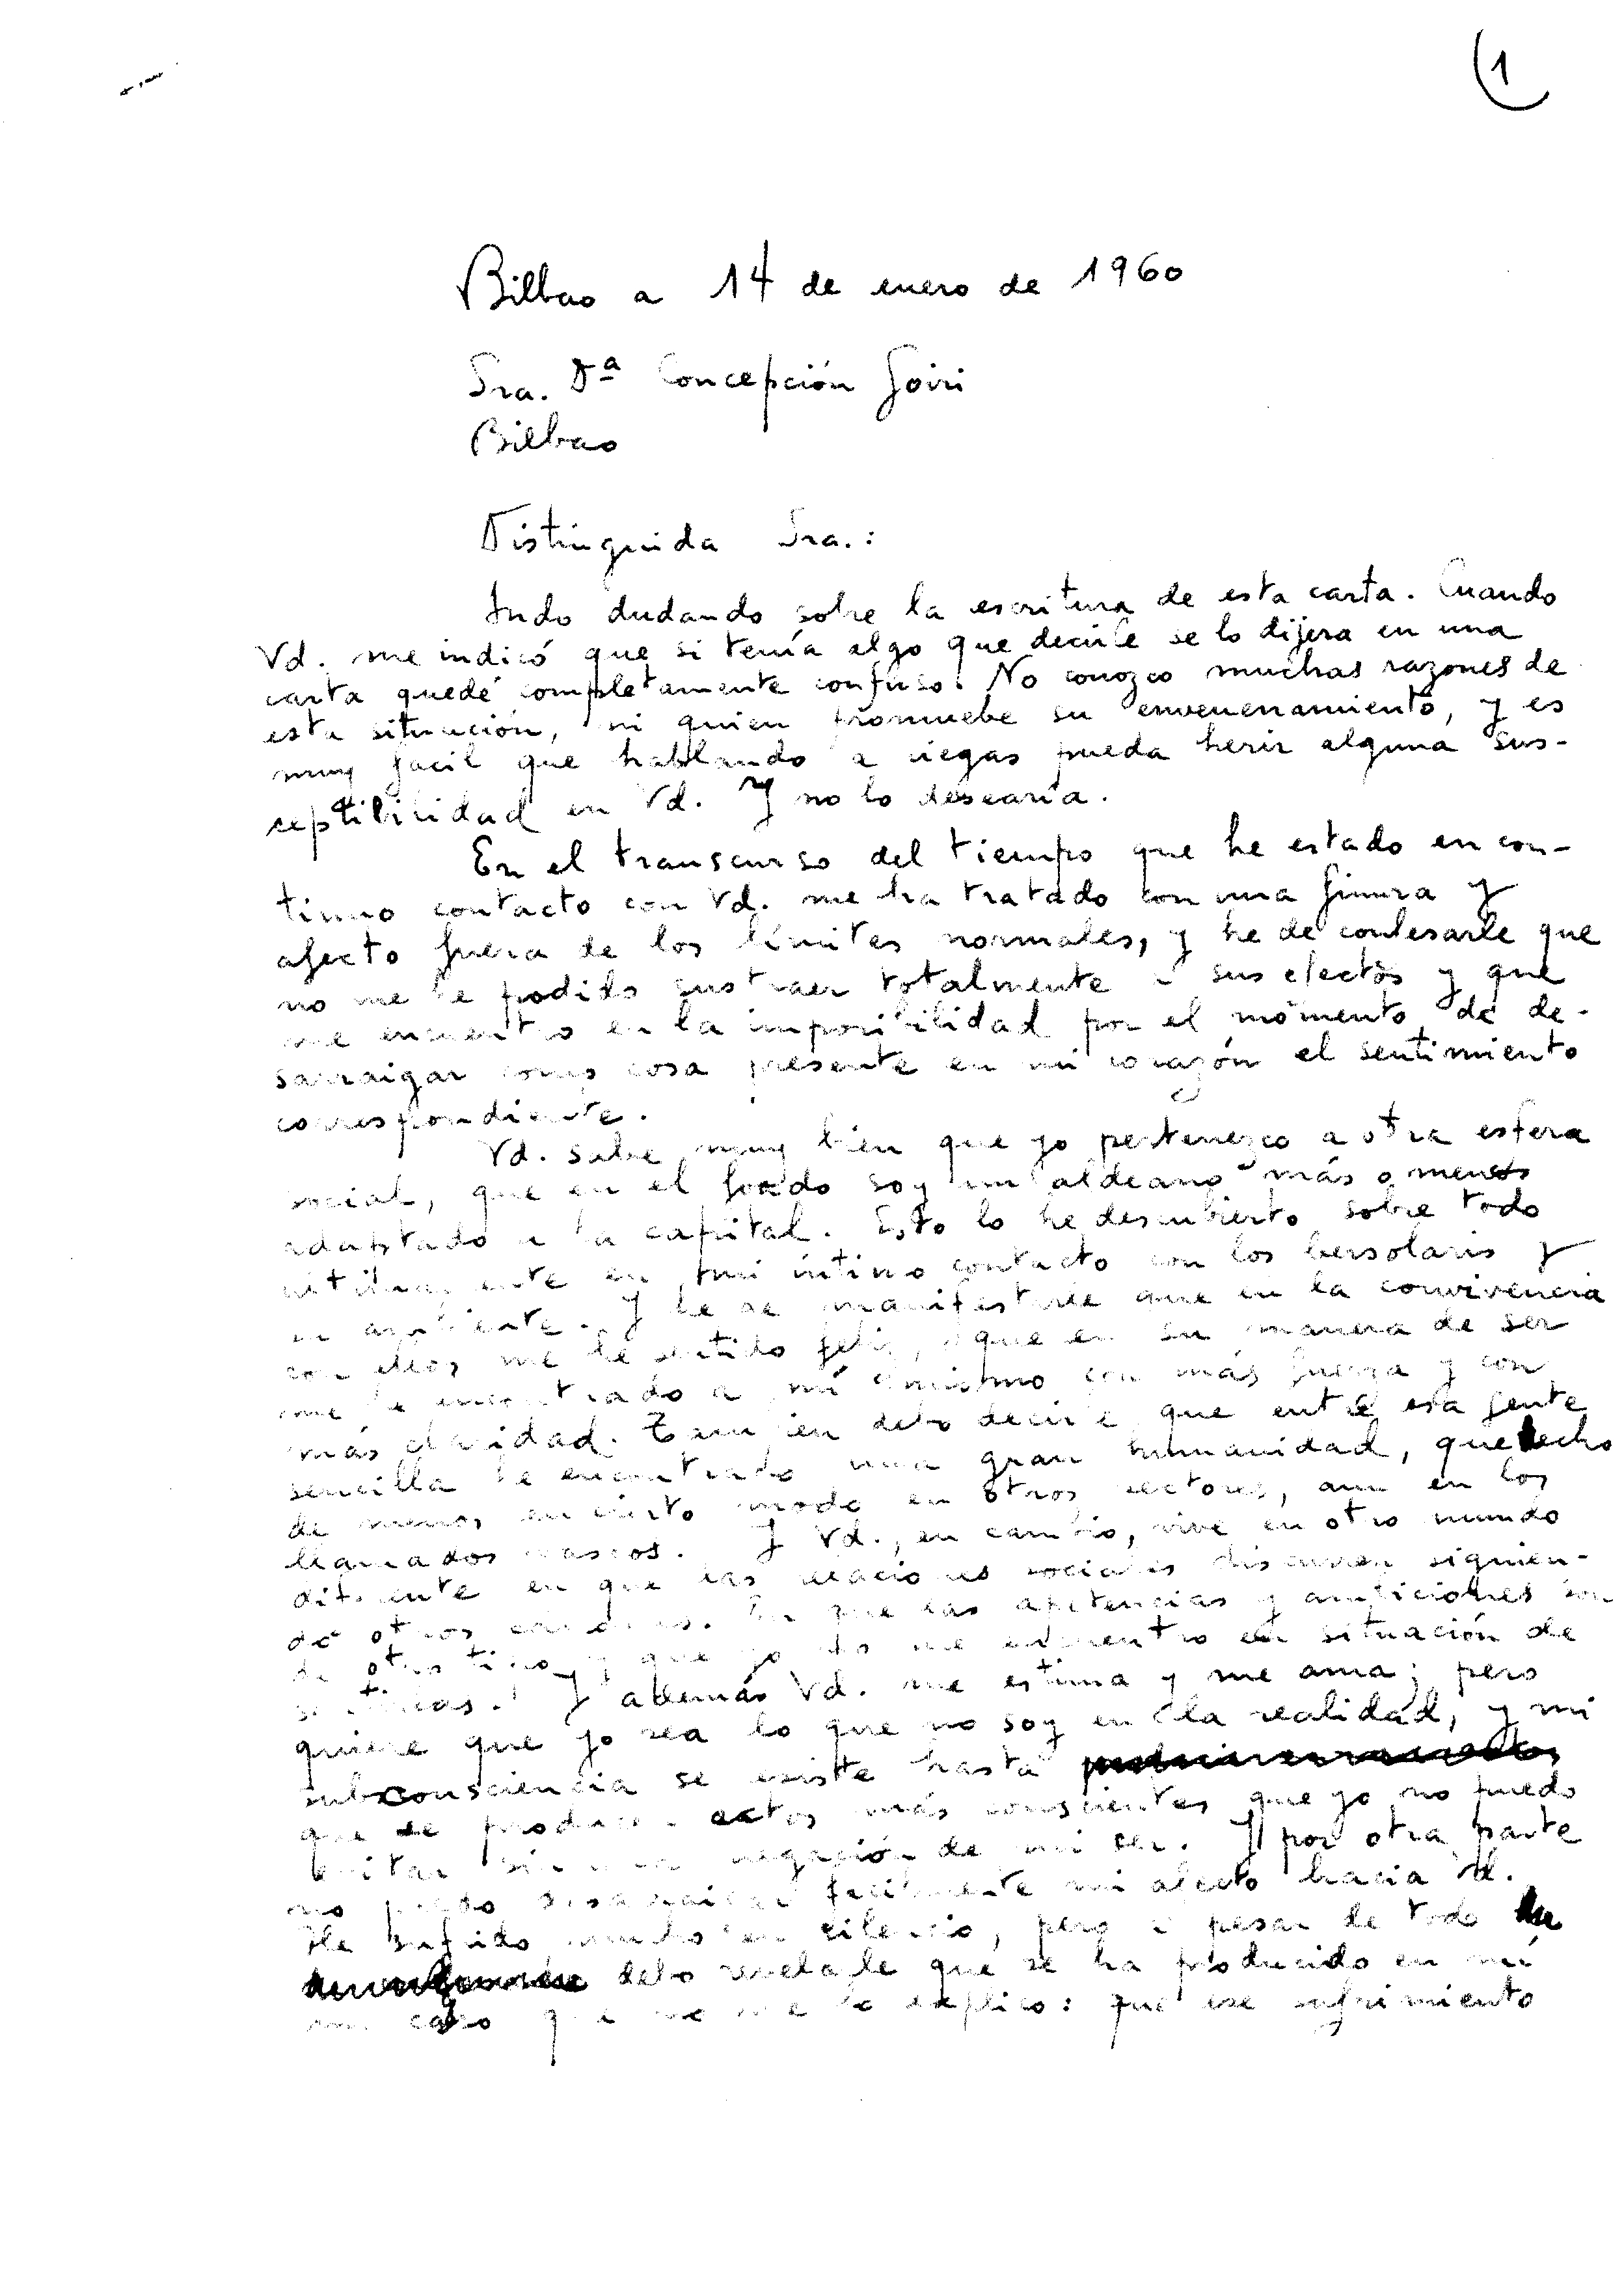 1
Bilbao a 14 de enero de 1960
Sra. Dª Concepción Goiri
Bilbao
Distinguida Sra.:
Ando dudando sobre la escritura de esta carta. Cuando
Vd. me indicó que si tenía algo que decirle se lo dijera en una
carta quedé completamente confuso. No conozco muchas razones de
esta situación, ni quien promuebe su envenenamiento, y es
muy facil que hablando a ciegas pueda herir alguna sus-
ceptibilidad en Vd. Y no lo desearía.
En el transcurso del tiempo que he estado en con-
tinuo contacto con Vd. me ha tratado con una finura y
afecto fuera de los límites normales, y he de confesarle que
no me he podido sustraer totalmente a sus efectos y que
me encuentro en la imposibilidad por el momento de de-
sarraigar como cosa presente en mi corazón el sentimiento
correspondiente.
Vd. sabe muy bien que yo pertenezco a otra esfera
social, que en el fondo soy un aldeano más o menos
adaptado a la capital. Esto lo he descubierto sobre todo
ultimamente en mi íntimo contacto con los bersolaris y
su ambiente. Y he de manifestarle que en la convivencia
con ellos me he sentido feliz, que en su manera de ser
me he encontrado a mí mismo con más fuerza y con
más claridad. También debo decirle que entre esa gente
sencilla he encontrado una gran humanidad, que hecho
de menos en cierto modo en otros sectores, aun en los
llamados vascos. Y Vd., en cambio, vive en otro mundo
diferente en que las relaciones sociales discurren siguien-
do otros . En que las apetencias y ambiciones son
de otro tipo y que yo no me encuentro en situación de
. Y además Vd. me estima y me ama; pero
quiere que yo sea lo que no soy en la realidad, y mi
subconsciencia se resiste hasta
que se actos más conscientes que yo no puedo
evitar sin una negación de mi ser. Y por otra parte
no puedo desarraigar facilmente mi afecto hacia Vd.
He sufrido mucho en silencio, pero a pesar de todo
debo revelarle que se ha producido en mí
un caso que no me lo explico: que ese sufrimiento